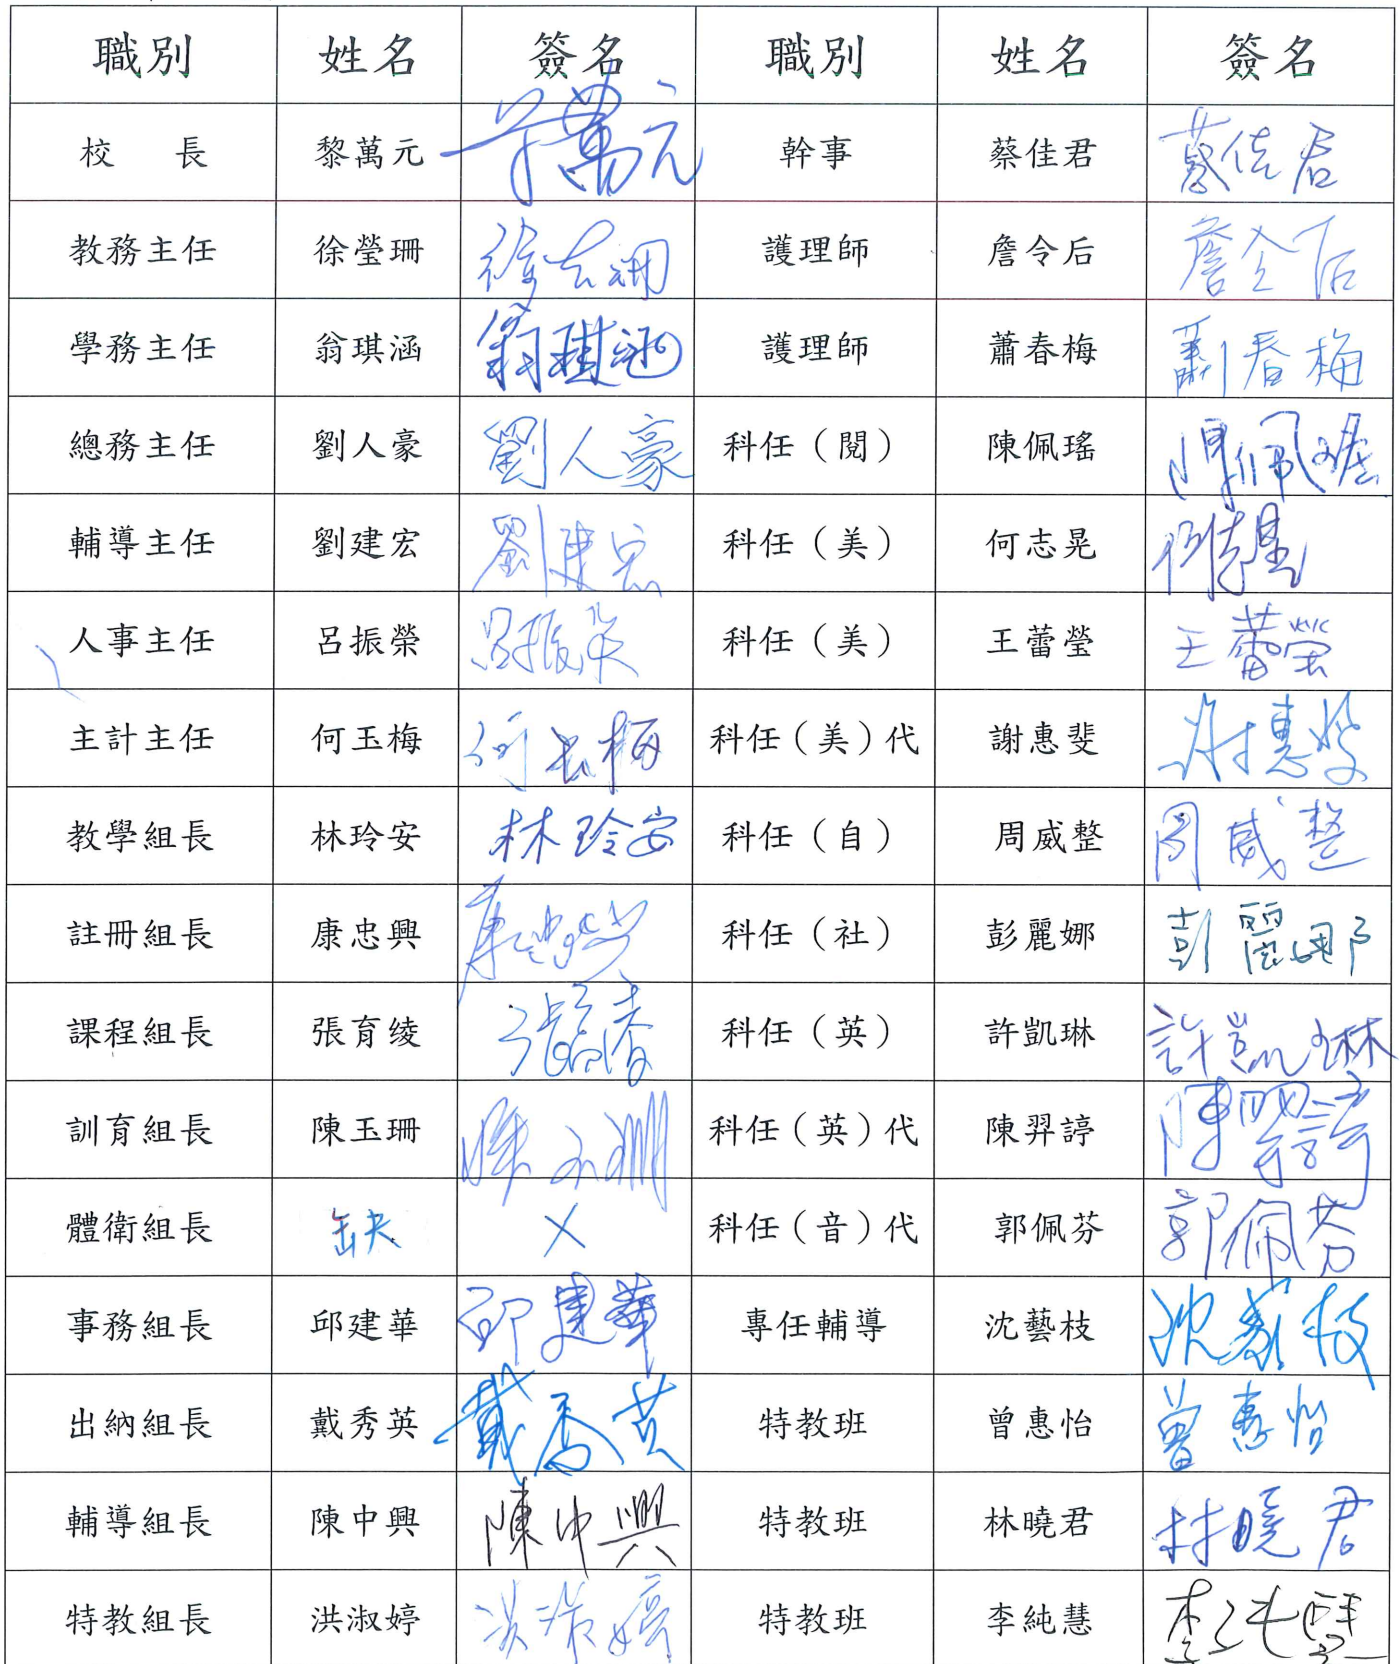 職別 姓名 簽名 職別 姓名 簽名
校 長 黎萬元 黎萬元 幹事 蔡佳君 蔡佳君
教務主任 徐瑩珊 徐瑩珊 護理師 詹令后 詹令后
學務主任 翁琪涵 翁琪涵 護理師 蕭春梅 蕭春梅
總務主任 劉人豪 劉人豪 科任（閱） 陳佩瑤 陳佩瑤
輔導主任 劉建宏 劉建宏 科任（美） 何志晃 何志晃
人事主任 呂振榮 呂振榮 科任（美） 王蕾瑩 王蕾瑩
主計主任 何玉梅 何玉梅 科任（美）代 謝惠斐 謝惠斐
教學組長 林玲安 林玲安 科任（自） 周威整 周威整
註冊組長 康忠興 康忠興 科任（社） 彭麗娜 彭麗娜
課程組長 張育绫 科任（英） 許凱琳 許凱琳
訓育組長 陳玉珊 陳玉珊 科任（英）代 陳羿諄 陳羿諄
體衛組長 缺 X 科任（音）代 郭佩芬 郭佩芬
事務組長 邱建華 邱建華 專任輔導 沈藝枝 沈藝枝
出納組長 戴秀英 戴秀英 特教班 曾惠怡 曾惠怡
輔導組長 陳中興 陳中興 特教班 林曉君 林曉君
特教組長 洪淑婷 洪淑婷 特教班 李純慧 李純慧